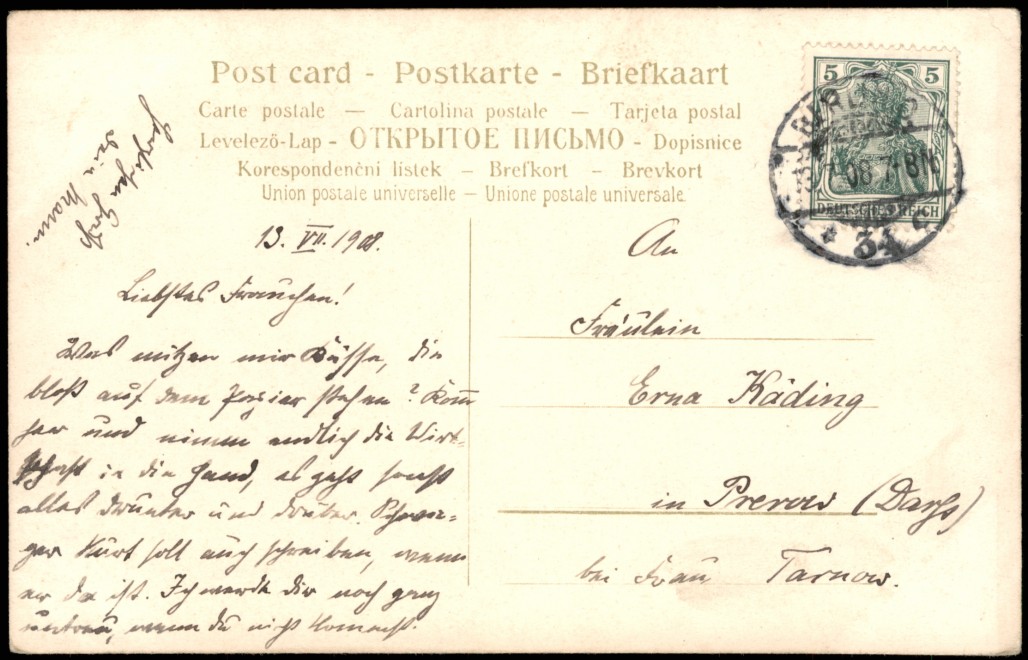 Post card - Postkarte - Briefkaart
Carte postale — Cartolina postale — Tarjeta postal
Levelező-Lap - ОТКРЫТОЕ ПИСЬМО - Dopisnice
Korespondenční listek — Brefkort — Brevkort
Union postale universelle — Unione postale universale.
Herzlichen Gruß
Dein Mann.
13. VII. 1908.
Liebstes Frauchen!
Was nützen mir Küsse, die
bloß auf dem Papier stehen? Komm
her und nimm endlich die Wirt-
schaft in die Hand, es geht sonst
alles drunter und drüber. Schwa-
ger Kurt soll auch schreiben, wenn
er da ist. Ich werde dir noch ganz
untreu, wenn du nicht kommst.
An
Fräulein
Erna Käding
in Prerow (Darß)
bei Frau Tarnow.
5 5
DEUTSCHES REICH
BERLIN
08 7-8N
34